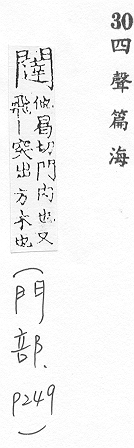 30 四聲篇海
闥 他曷切門内也又
飛丨突出方木也
(門部. P249)